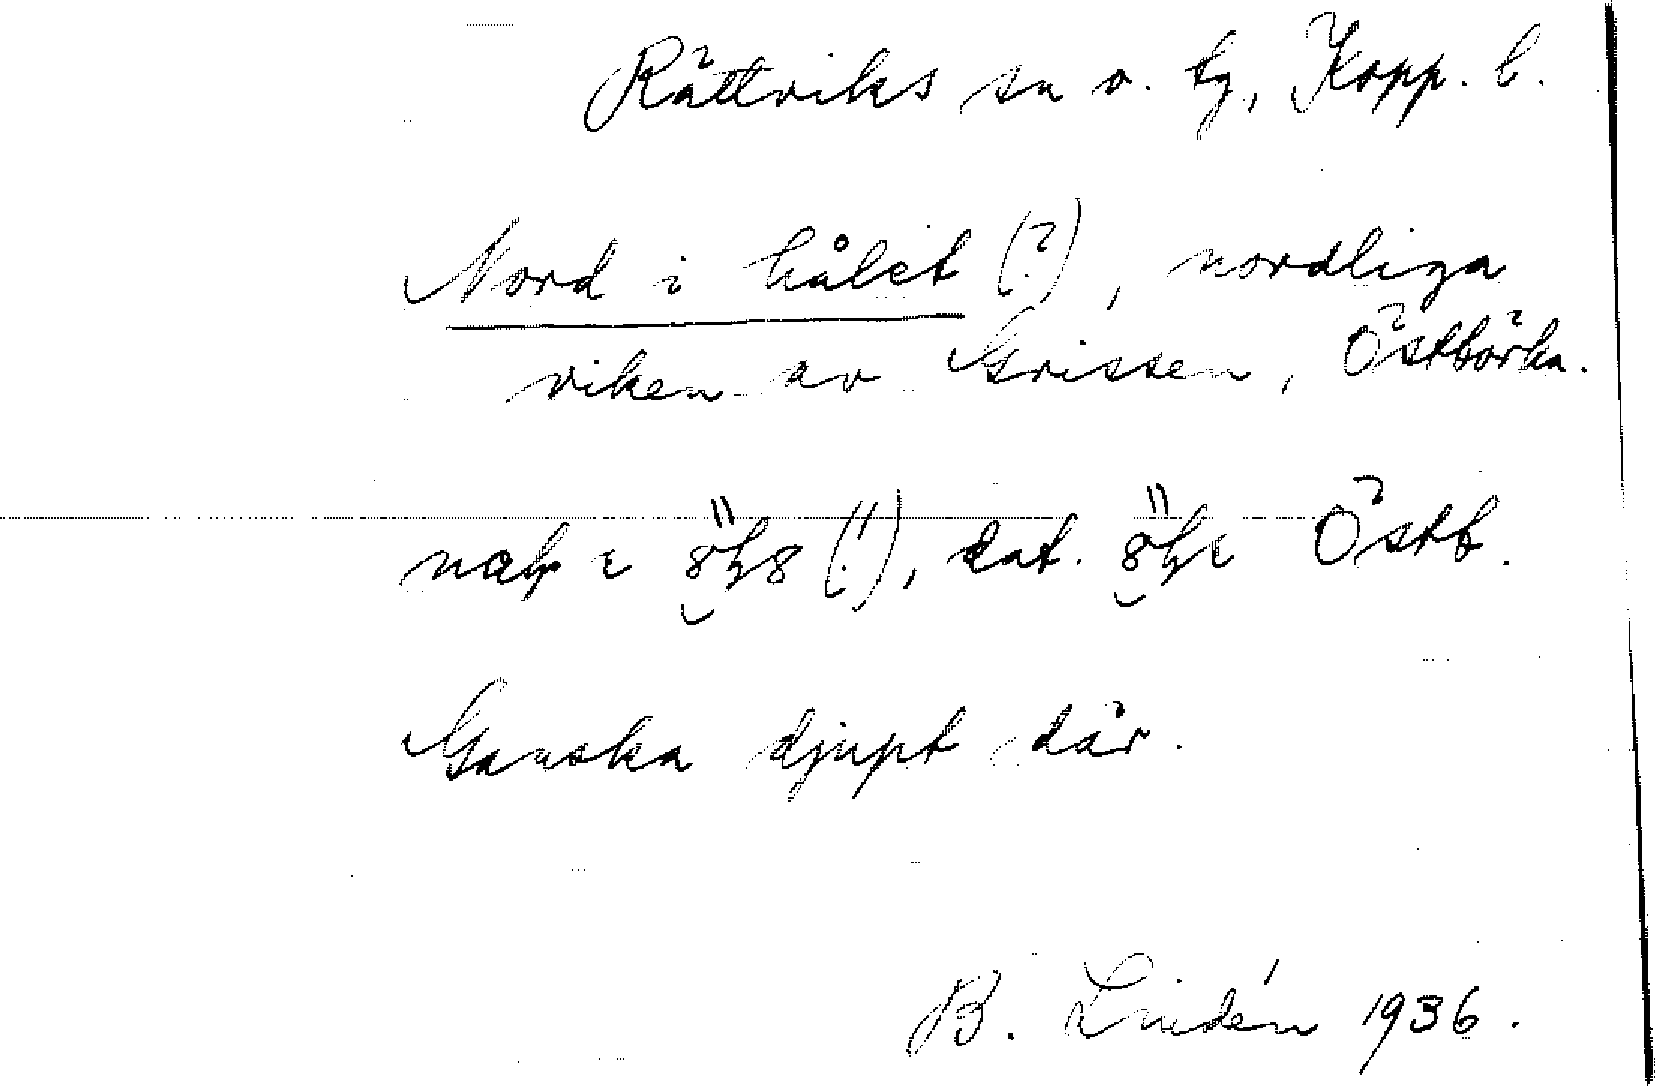 Rättviks sn o. tg, Kopp. l.
Nord i hålet (?), nordliga
viken av Grissen, Östbörka.
(!), dat. Östb.
Ganska djupt där.
B. Lindén 1936.